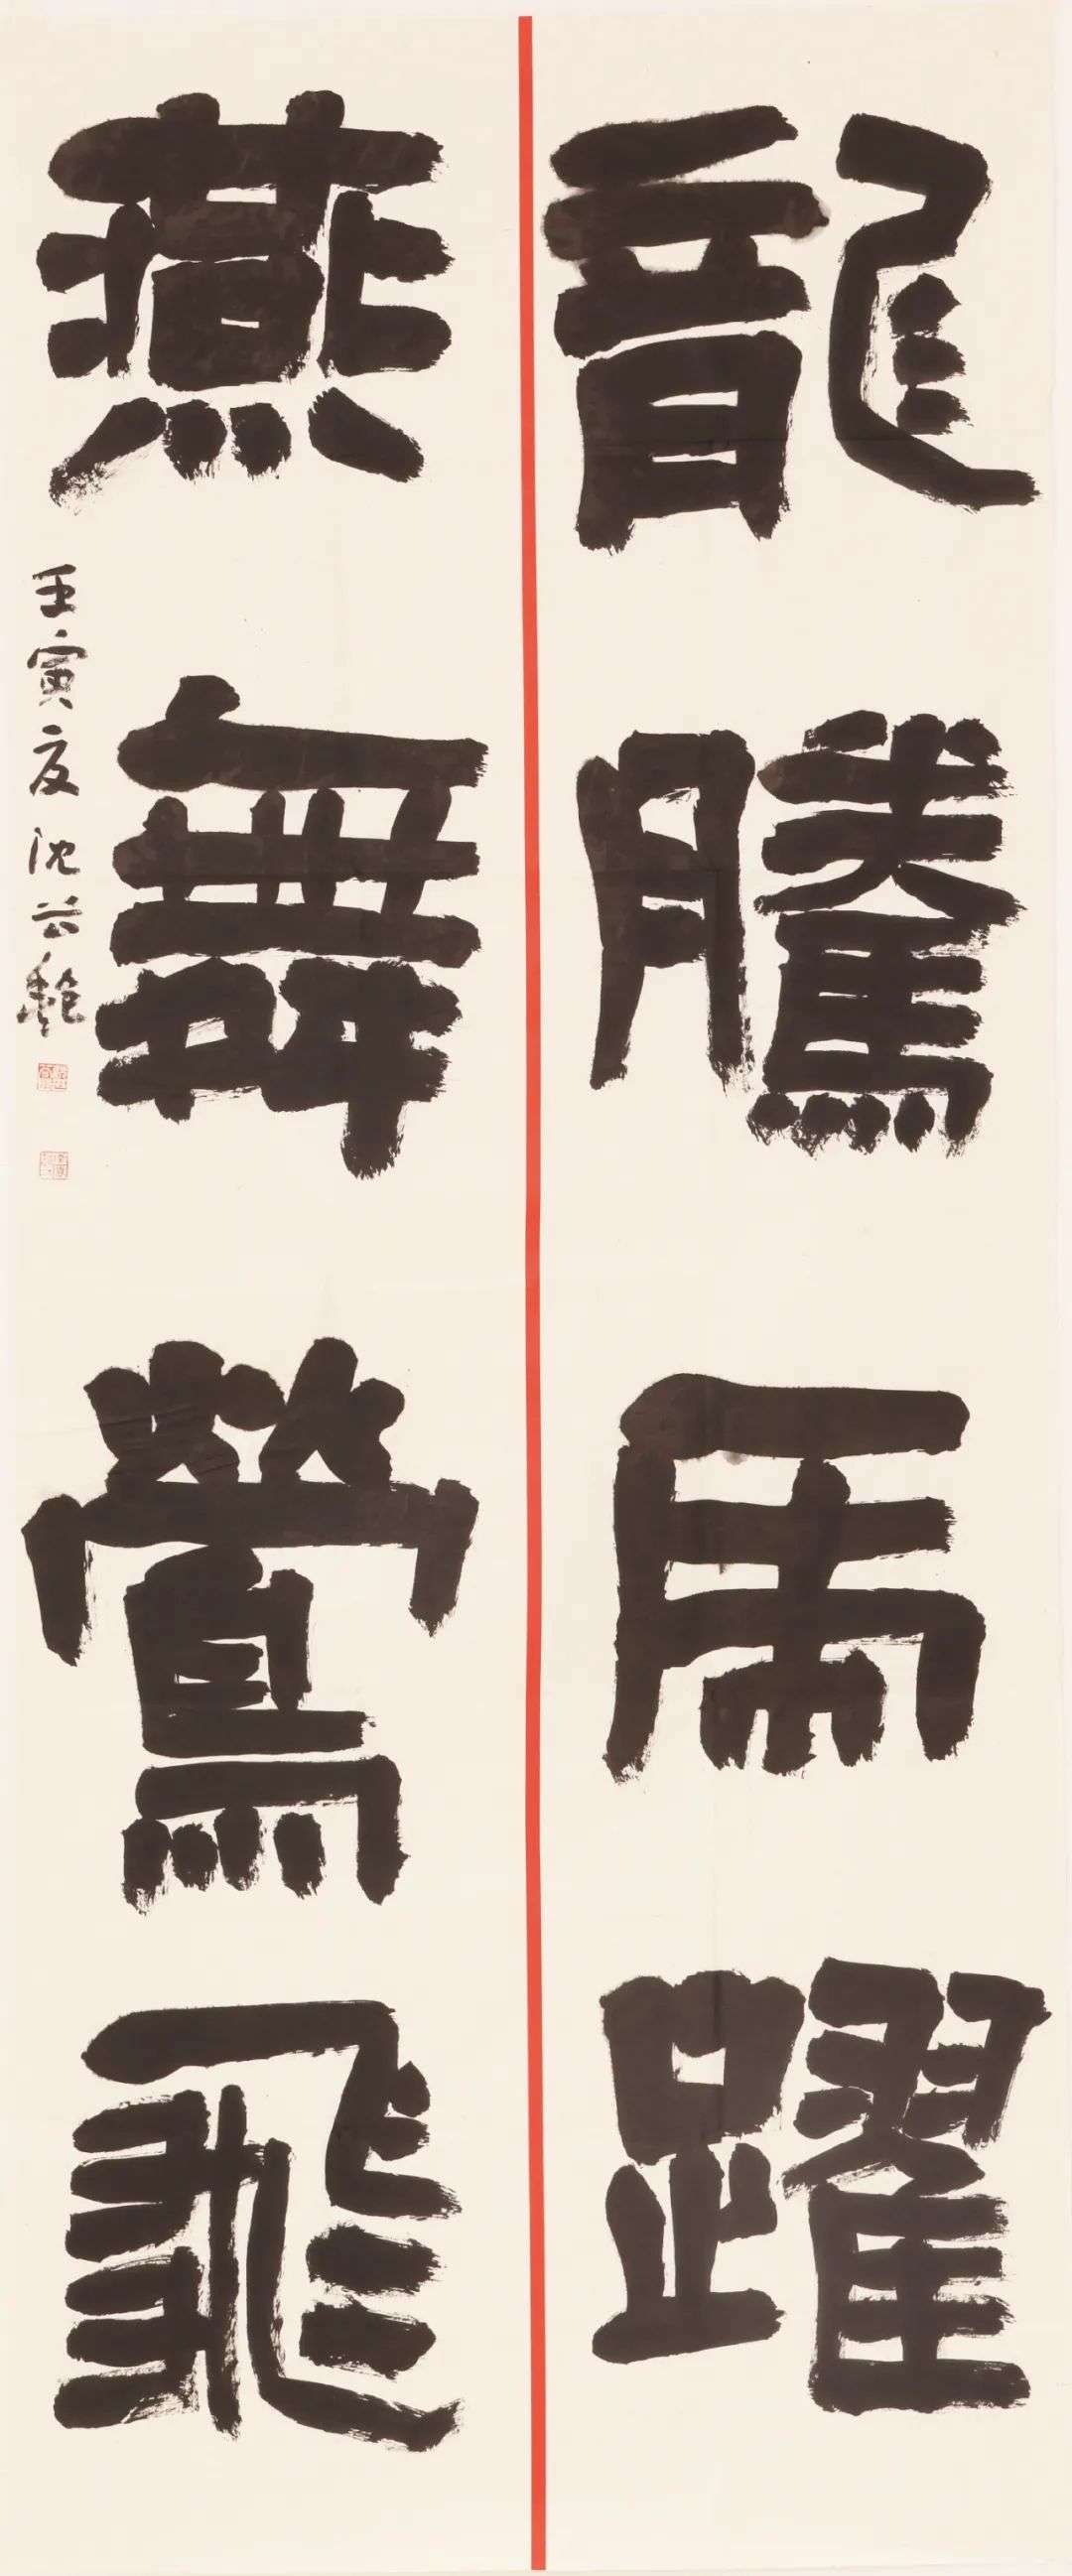 龍騰馬躍
燕舞鶯飛
壬寅夏沈公